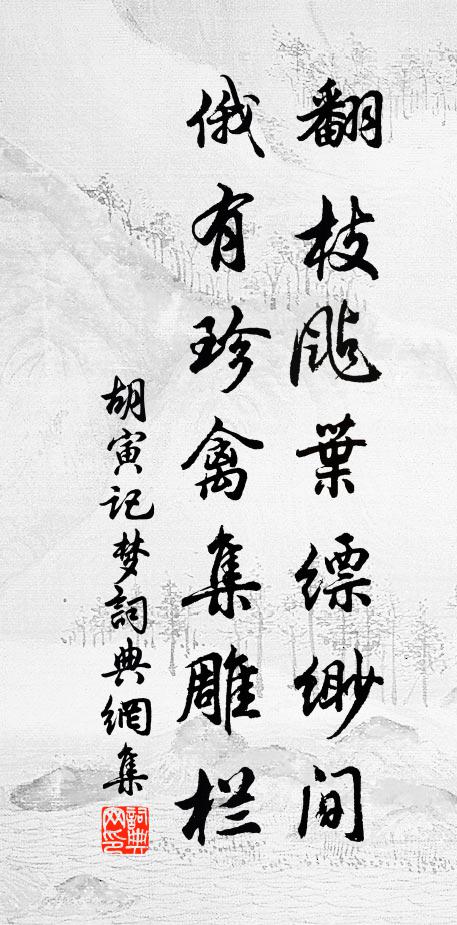 翻枝飐葉缥缈间
俄有珍禽集雕栏
胡寅记梦詞典網集
詞典网印